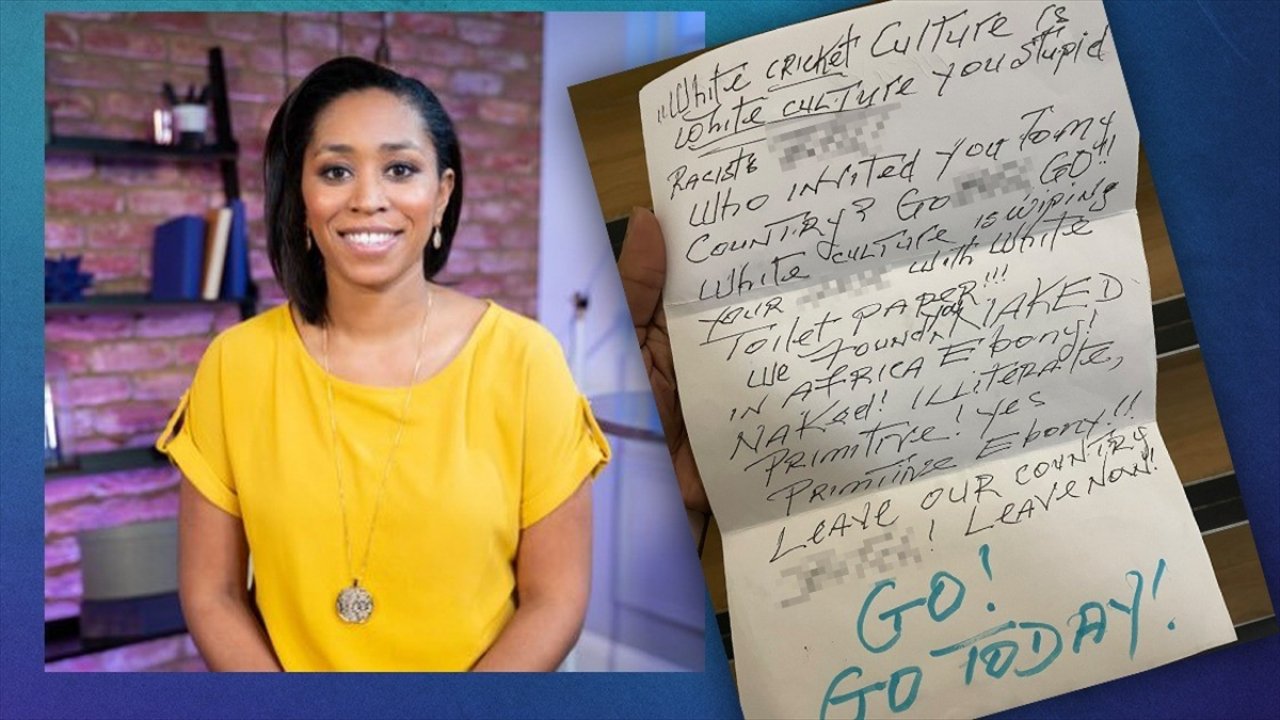 "White CRicket Culture is
White culture you stupid
Racists
Who invited you To my
Country? Go GO!!
White culture is wiping
your with white
Toilet paper!!!
We found you NAKED
in Africa Ebony!
NaKed! illiterate,
Primitive! yes
Primitive Ebony!!
Leave our country
! Leave Now!
GO!
GO TODAY!